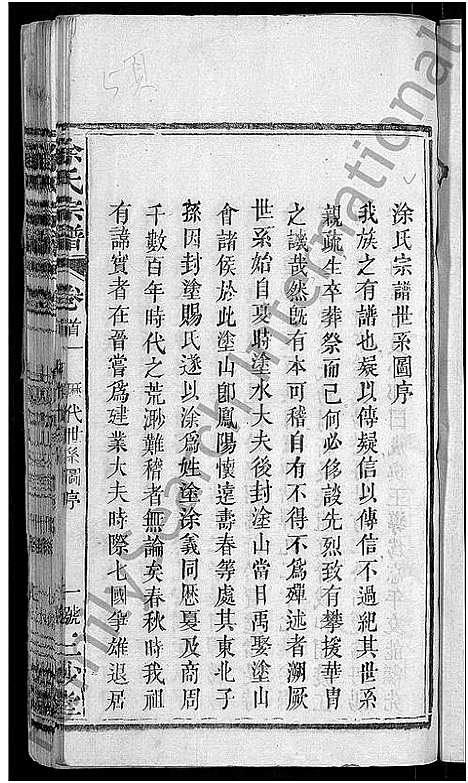 涂氏宗譜世系圖序
我族之有譜也疑以傳疑信以傳信不過紀其世系
親疏生卒葬祭而已何必侈談先烈致有攀援華胄
之譏哉然既有本可稽自不得不為殫述者溯厥
世系始自夏時塗水大夫後封塗山當日禹娶塗山
會諸侯於此塗山卽鳳陽懷遠壽春等處其東北子
孫因封塗賜氏遂以涂爲姓塗涂義同歷夏及商周
千數百年時代之荒渺難稽者無論矣春秋時我祖
有諱實者在晉嘗爲建業大夫時際七國爭雄退居
涂氏宗譜
卷首
歷代世系圖序
一
頁
Family Search International